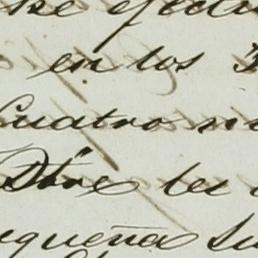 se efectu
en los 3
Cuatro
Dbre les
equeña su